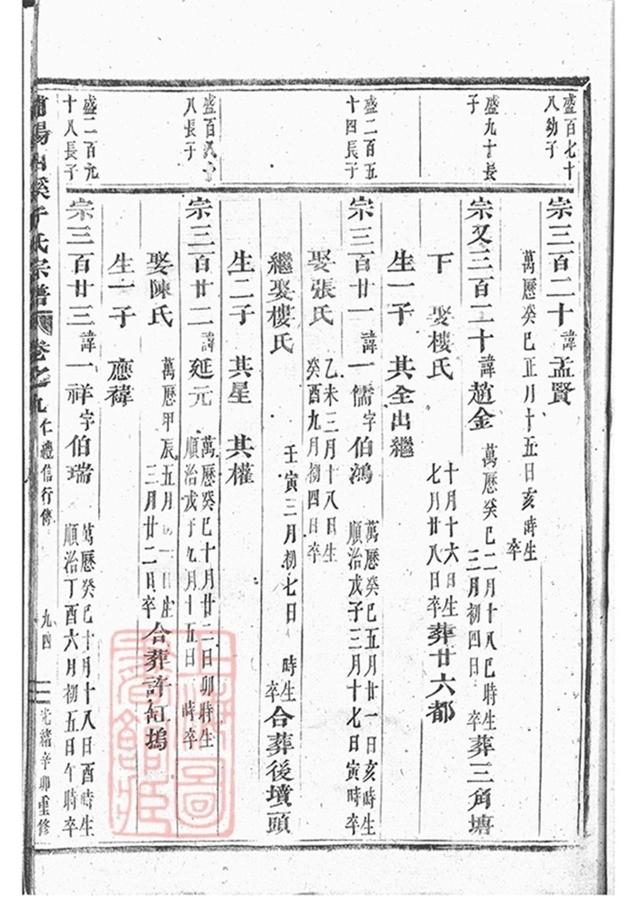 盛百七十
八幼子
宗三百二十諱孟賢
萬曆癸巳正月十五日亥時生
卒
盛九十長
子
宗又三百二十諱趙金
萬曆癸巳二月十八巳時生
三月初四日卒
葬三角塘
下娶樓氏
十月十六日生
七月廿八日卒
葬廿六都
生一子其全出繼
盛二百五
十四長子
宗三百廿一諱一儒字伯鴻
萬曆癸巳五月廿一日亥時生
順治戊子三月十七日寅時卒
娶張氏
乙未三月十八日生
癸酉九月初四日卒
繼娶樓氏
壬寅三月初七日時生
卒
合葬後墳頭
生二子其星其權
盛百八十
八長子
宗三百廿二諱延元
萬曆癸巳十月廿二日卯時生
順治戊子九月十五日時卒
娶陳氏
萬曆甲辰五月一日生
三月廿二日卒
合葬許缸塢
生一子應禕
盛二百九
十八長子
宗三百廿三諱一祥字伯瑞
萬曆癸巳十月十八日酉時生
順治丁酉六月初五日午時卒
陽 溪于氏宗譜
卷之九仁禮信行傳
九四
光緒辛卯重修